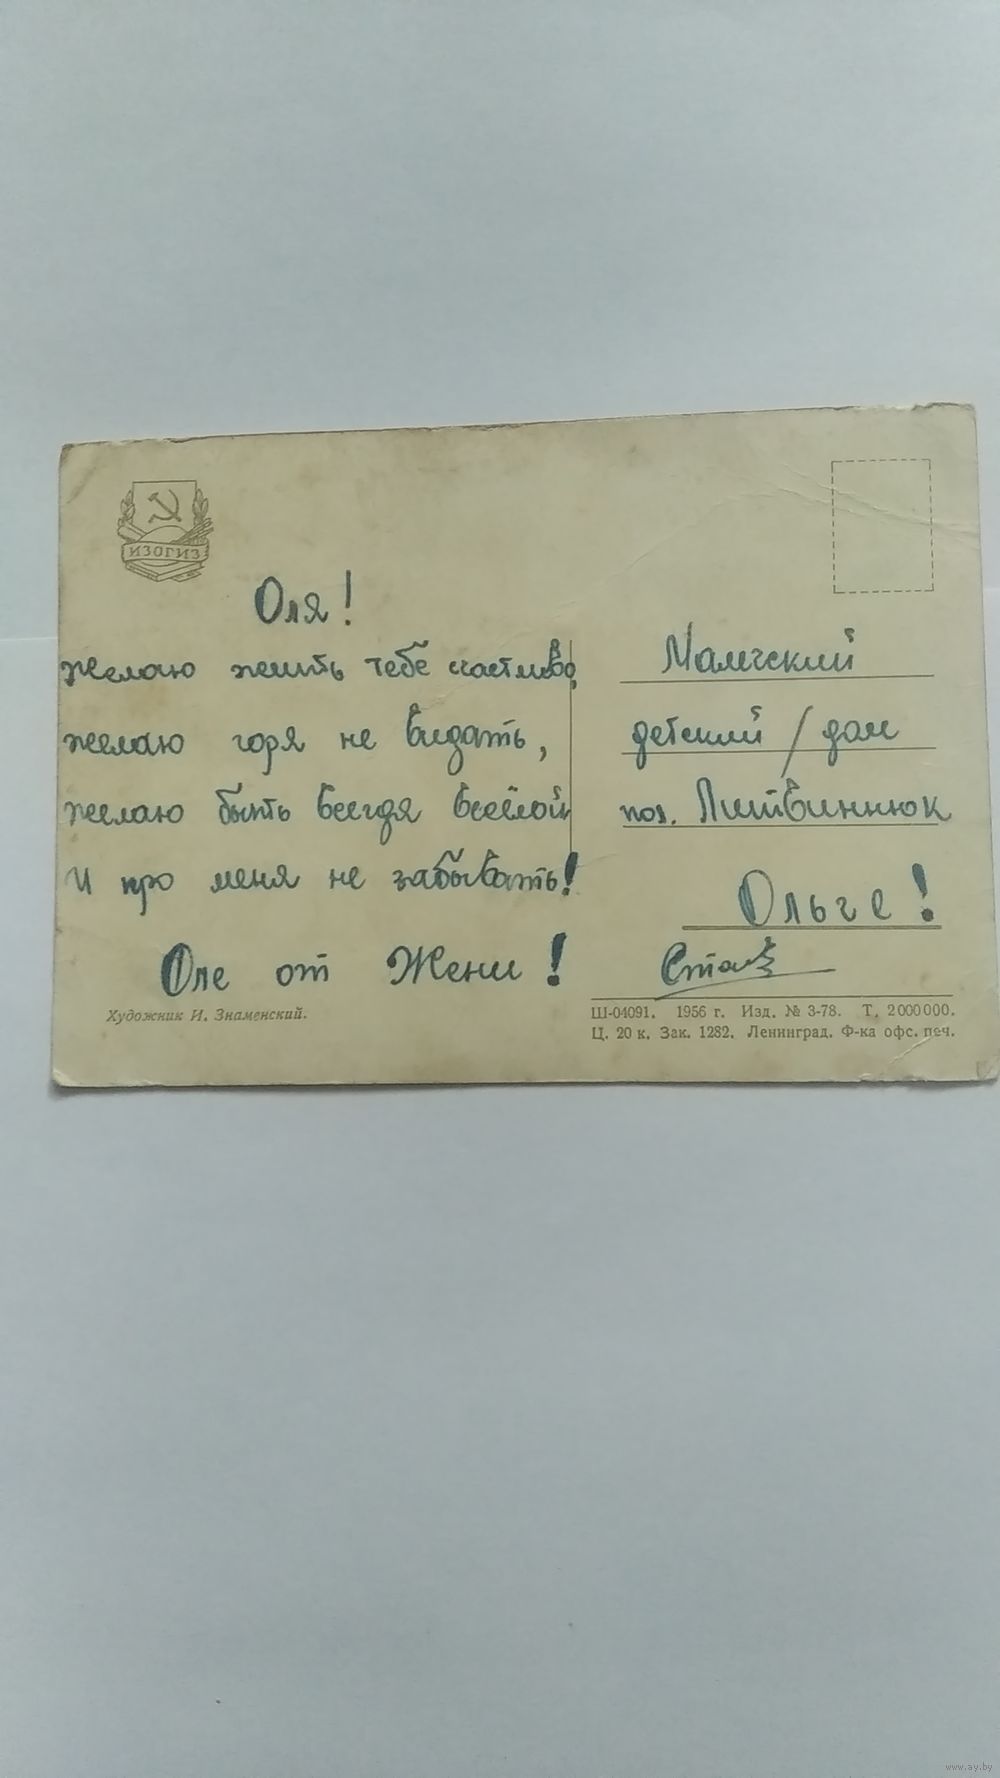 ИЗОГИЗ
Оля!
желаю жить тебе счастливо,
желаю горя не видать,
желаю быть всегдя весёлой
И про меня не забывать!
Оле от Жени!
Художник И. Знаменский.
детский / дом
Литвиннюк
Ольге!
Ш-04091. 1956 г. Изд. № 3-78. Т. 2000000.
Ц. 20 к. Зак. 1282. Ленинград. Ф-ка офс. печ.
www.ay.by